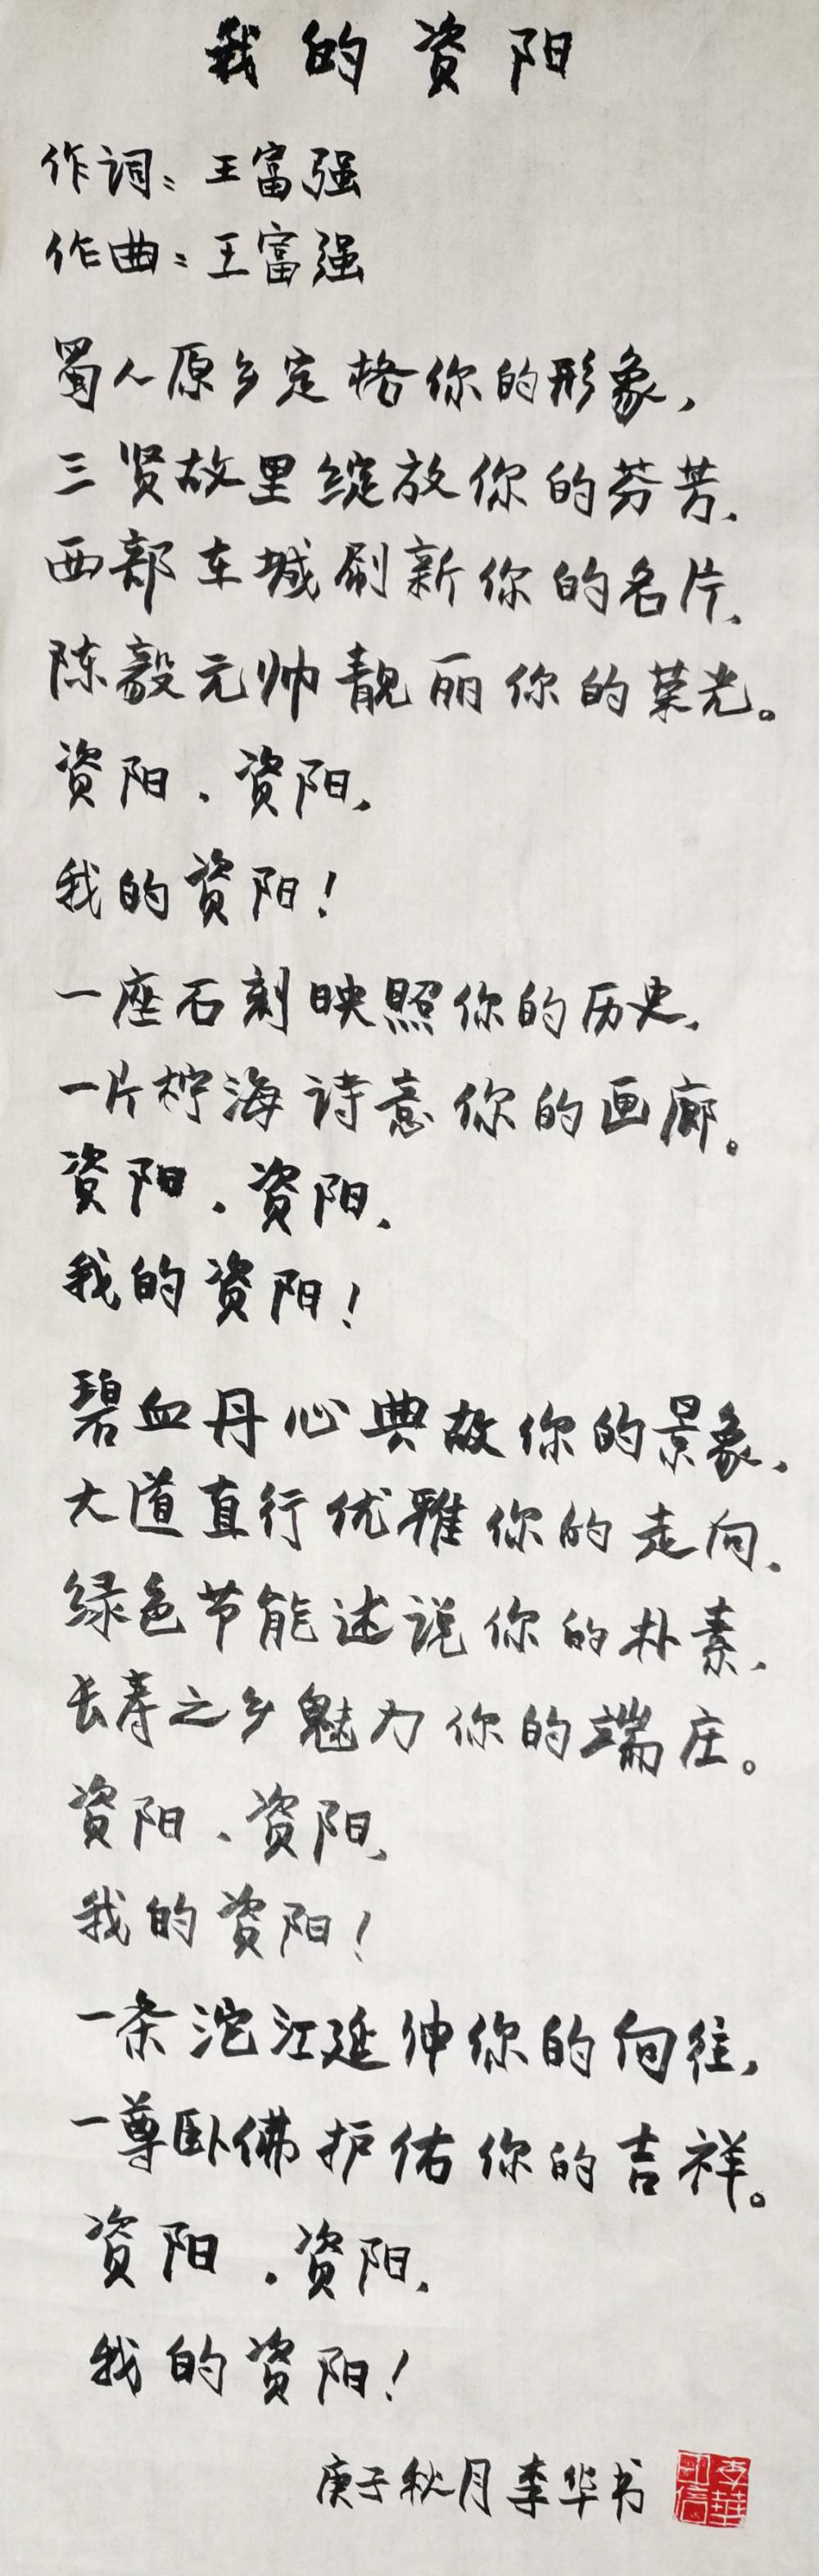 我的资阳
作词：王富强
作曲：王富强
蜀人原乡定格你的形象，
三贤故里绽放你的芬芳，
西部车城刷新你的名片，
陈毅元帅靓丽你的荣光。
资阳，资阳，
我的资阳！
一座石刻映照你的历史，
一片柠海诗意你的画廊。
资阳，资阳，
我的资阳！
碧血丹心典故你的景象，
大道直行优雅你的走向，
绿色节能述说你的朴素，
长寿之乡魅力你的端庄。
资阳，资阳，
我的资阳！
一条沱江延伸你的向往，
一尊卧佛护佑你的吉祥。
资阳，资阳，
我的资阳！
庚子秋月李华书
李華印信